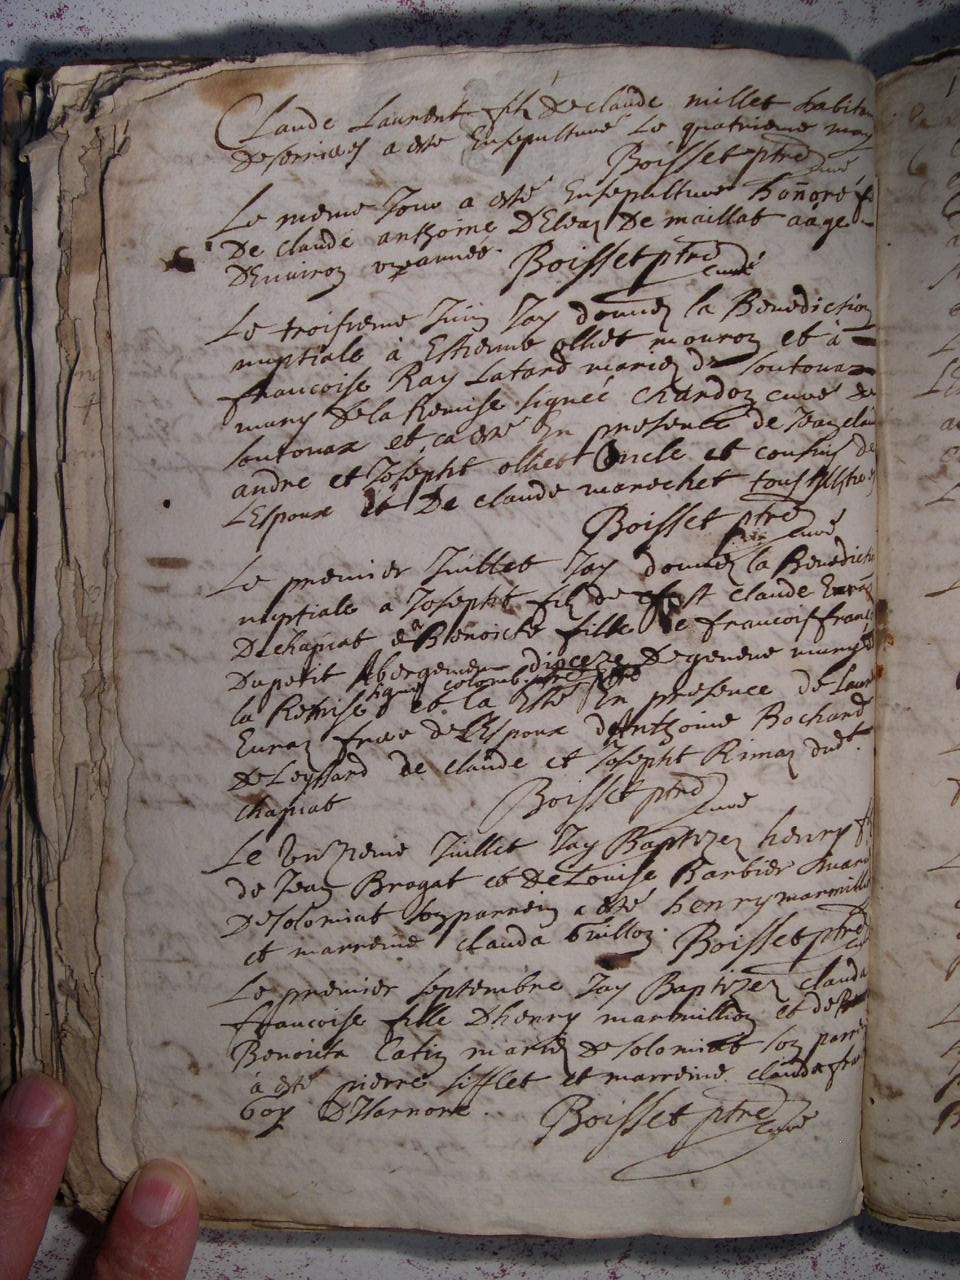 Claude Laurent fils de claude millet habitan
de serrieres a esté Ensepulturé Le quatrieme may
Boisset ptre curé
Le meme Jour a esté Ensepulturé honnoré f
De claude anthoine D'Eleaz De maillat aage
D'Environ années. Boisset ptre curé
Le troisieme Juin Jay donnez la Benediction
nuptiale à Estienne olliet mouroz et à
francoise Ray Latard mariez de soutonax
muny de la Remise signée chardoz curé de
soutonax et ca esté En presence de Jean clau
andre et Joseph olliet Oncle et cousins de
L'Espoux Et De claude marechet tous
Boisset ptre curé
Le premier Juillet Jay donnez la Benedicti
nuptiale a Joseph fils de feust claude Evraz
De chapiat et a Benoicte fille De francois franc
Du petit Abergement dioceze De geneve muny d
signé colomb ptre
la Remise et la Esté En presence de Laur
Euraz frere de L'Espoux d'Anthoine Rochard
de Leyssard de claude et Joseph Rimaz dudt
chapiat Boisset ptre curé
Le Unzieme Juillet Jay Baptizez henry ff
de Jean Bragat et de Louise Barbier mari
De solomiat son parrein a esté henry marmill
et marreine Clauda Guilloz. Boisset ptre cu
Le premier septembre Jay Baptizez clauda
ffrancoise fille D'henry marmillioz et de
Benoite Catin mariez de solomiat son parr
à esté pierre sifflet et marreine clauda fra
Goy D'Varnore. Boisset ptre curé